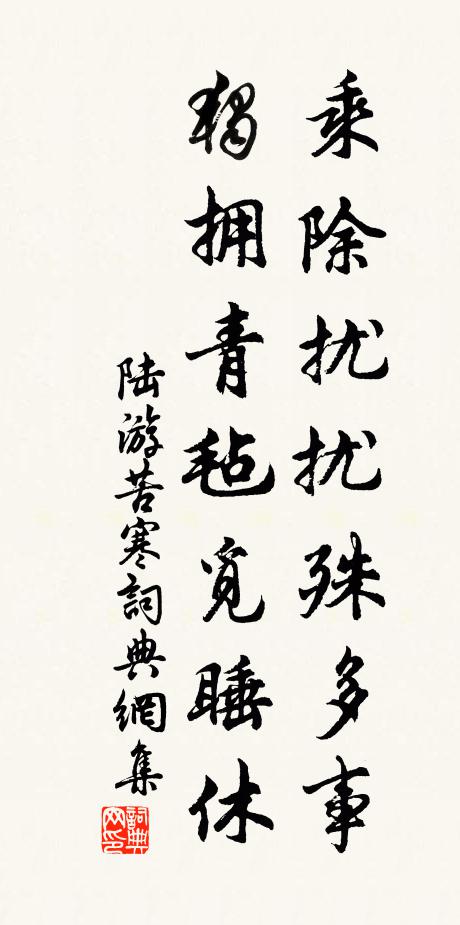 乘除扰扰殊多事
独拥青毡觅睡休
陆游苦寒詞典網集
詞典网印